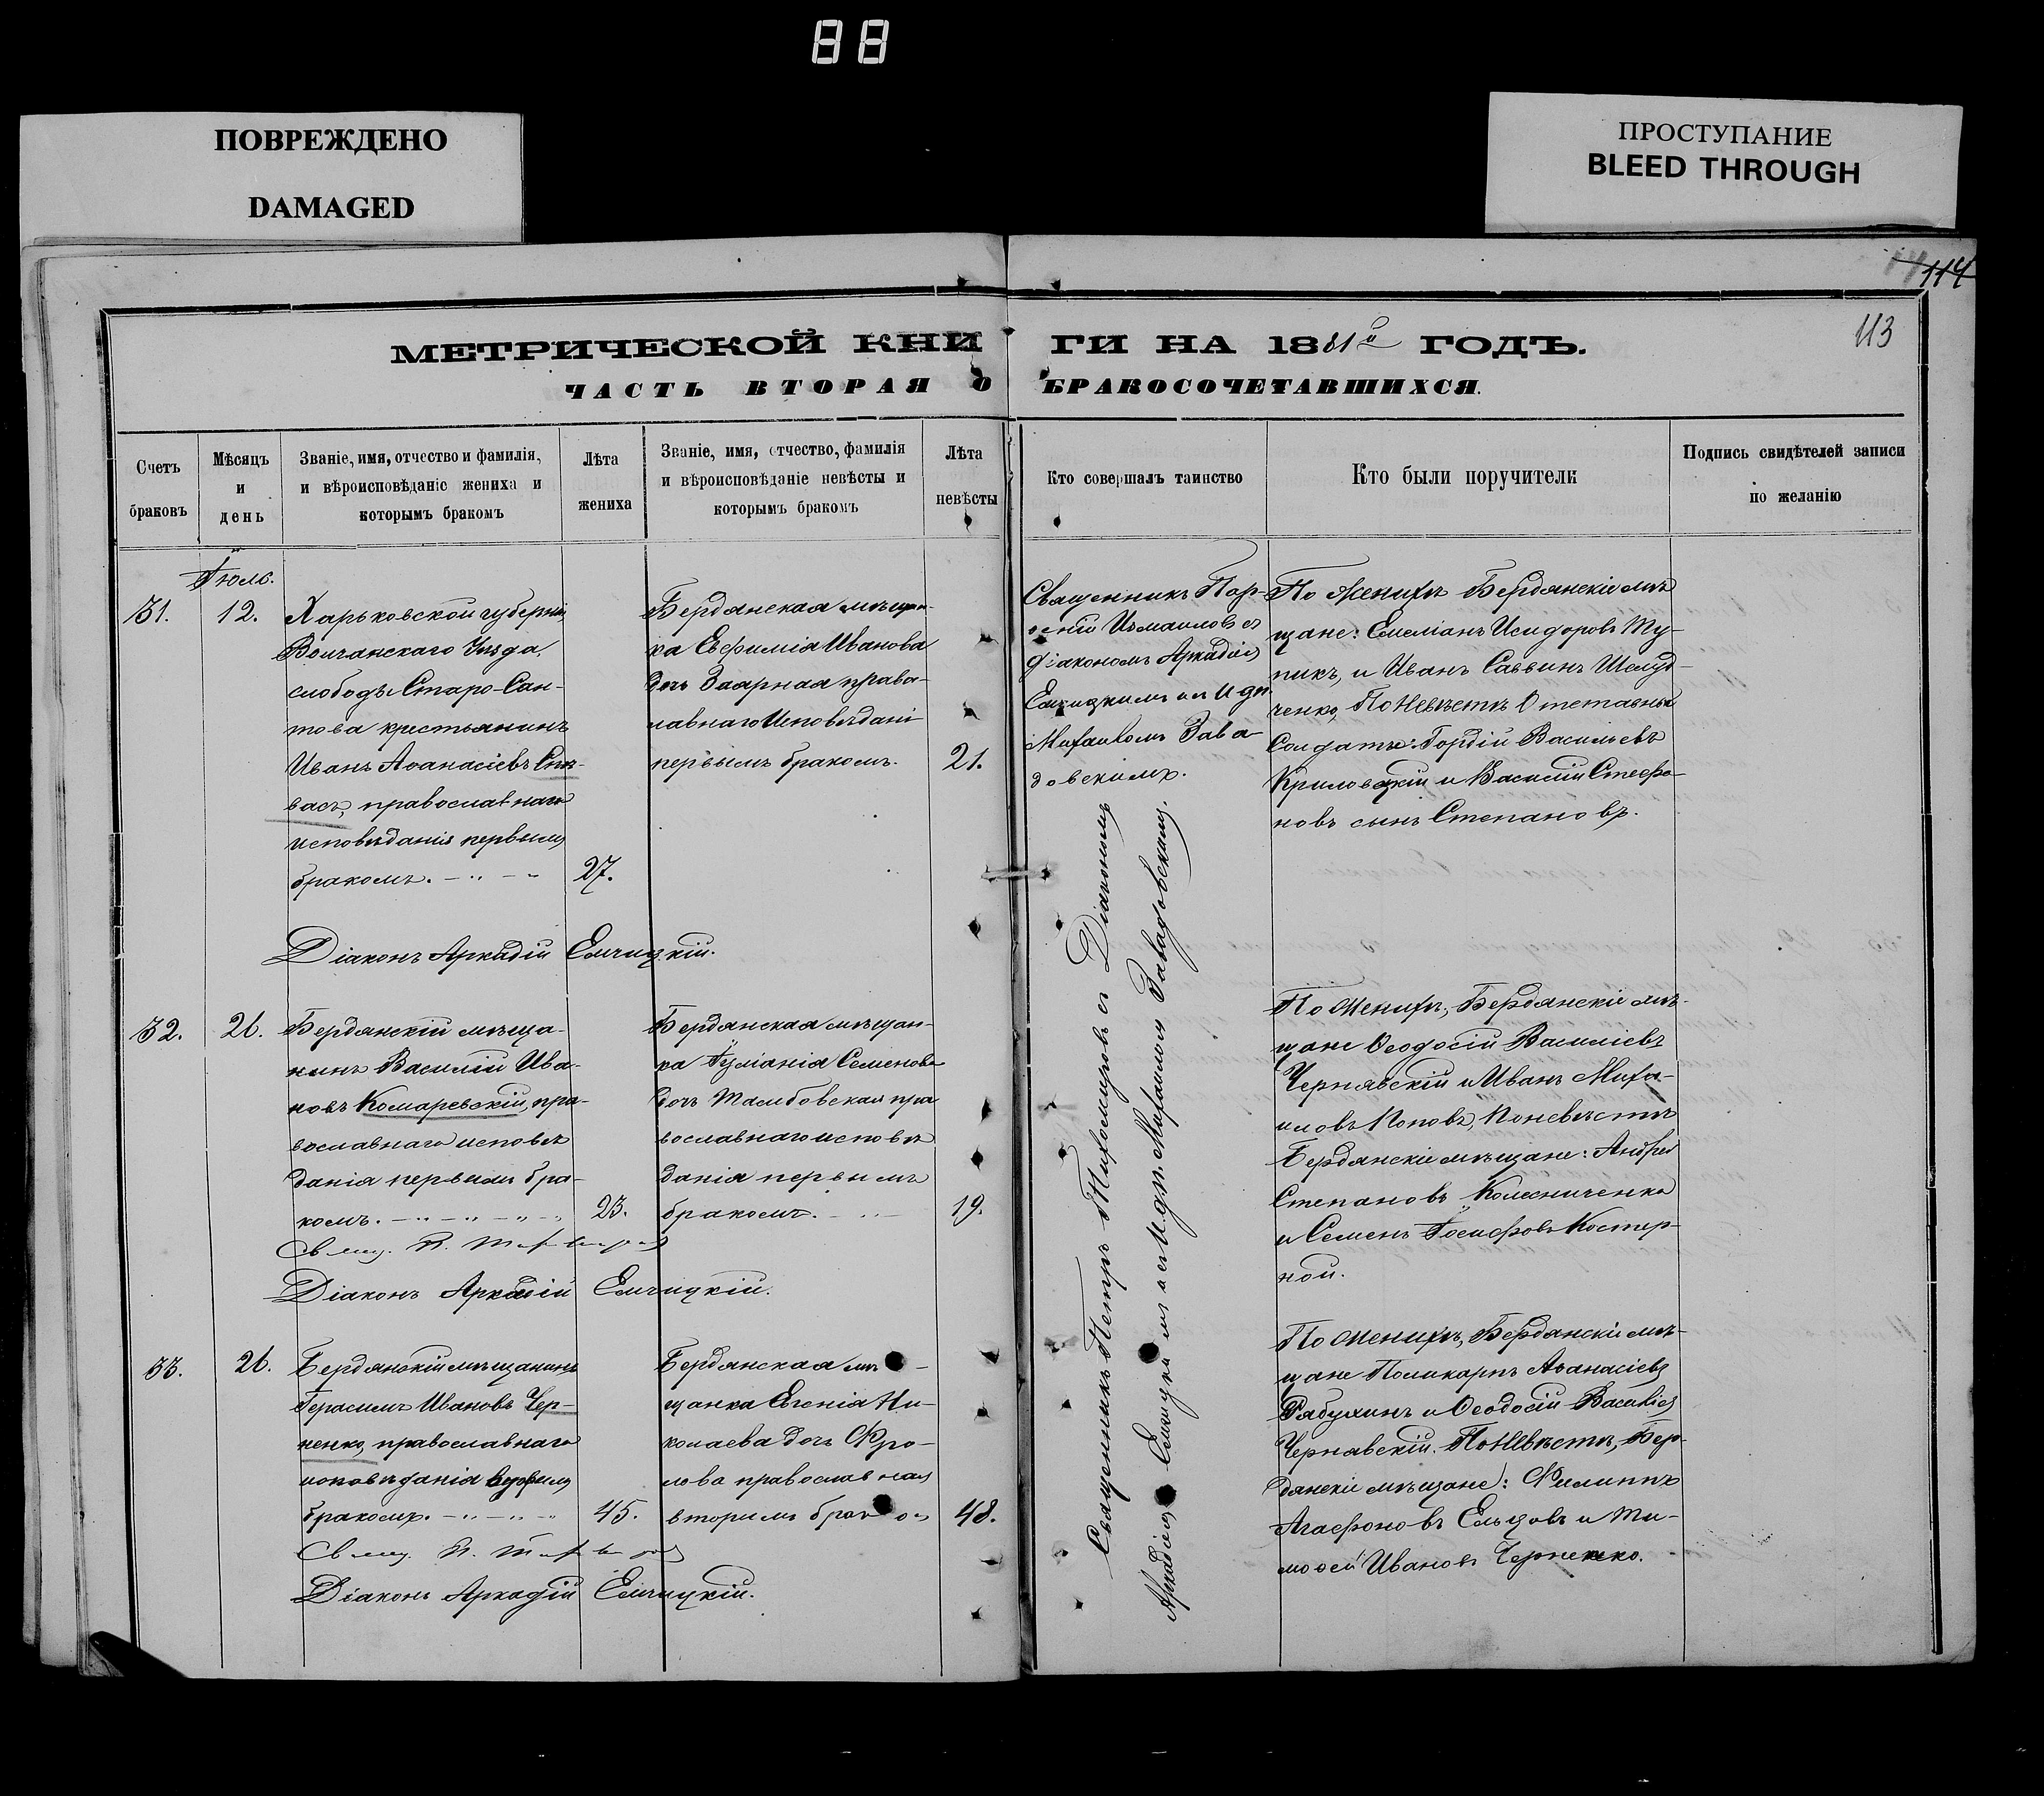 88
ПОВРЕЖДЕНО
DAMAGED
ПРОСТУПАНИЕ
BLEED THROUGH
114
113
МЕТРИЧЕСКОЙ КНИГИ НА 1881й ГОДЪ.
ЧАСТЬ ВТОРАЯ О БРАКОСОЧЕТАВШИХСЯ.
Счетъ
браковъ
Мѣсяцъ
и
день
Званіе, имя, отчество и фамилія,
и вѣроисповѣданіе жениха и
которымъ бракомъ
Лѣта
жениха
Званіе, имя, отчество, фамилія
и вѣроисповѣданіе невѣсты и
которымъ бракомъ
Лѣта
невѣсты
Кто совершалъ таинство
Кто были поручители
Подпись свидѣтелей записи
по желанію
Іюль.
31.
12.
Харьковской губерніи
Волчанскаго Уѣзда,
слободы Старо-Сал-
това крестьянинъ
Иванъ Аѳанасіевъ
православнаго
исповѣданія первымъ
бракомъ.
27.
Бердянская мѣщан-
ка Евфимія Иванова
дочь Заярная право-
лавнаго Исповѣдані
первымъ бракомъ.
21.
Священникъ Пар-
ѳеній Измаиловъ съ
Діакономъ Аркадіем
Емчицкимъ и
Михаиломъ Зава-
довскимъ.
По Женихѣ Бердянскіе мѣ
щане: Емеліанъ Исидоровъ Ту-
пикъ, и Иванъ Саввинъ Шелуд-
ченко, По Невѣстѣ Отставные
Солдаты: Гордій Васильевъ
Криловецкій и Василій Стефа-
новъ сынъ Степановъ.
Діаконъ Аркадій Емчицкій.
32.
26.
Бердянскій мѣща-
нинъ Василій Ива-
новъ Комаревскій, пра-
вославнаго исповѣ
данія первымъ бра-
комъ.
23.
Бердянская мѣщан-
ка Іуліанія Семенова
дочь Тамбовская пра
вославнаго исповѣ
данія первымъ
бракомъ.
19.
Священникъ Петръ Тихомировъ съ Діакономъ
Аркадіем Емчицкимъ и Михаиломъ Завадовскимъ.
По Женихѣ, Бердянскіе мѣ-
щане Ѳеодосій Василіевъ
Чернявскій и Иванъ Миха-
иловъ Поповъ, По невѣстѣ
Бердянскіе мѣщане: Андрей
Степановъ Колесниченко
и Семенъ Іосифовъ Костер-
ной.
Свящ. П. Тихомиров
Діаконъ Аркадій Емчицкій.
33.
26.
Бердянскій мѣщанинъ
Герасимъ Ивановъ Чер-
ненко, православнаго
исповѣданія вторымъ
бракомъ.
45.
Бердянская мѣ-
щанка Евгенія Ни-
колаева дочь Фро-
лова православная
вторимъ брако
48.
По Женихѣ, Бердянскіе мѣ-
щане Поликарпъ Аѳанасіевъ
Рябухинъ и Ѳеодосій Василіев
Чернявскій. По Невѣстѣ, Бер-
дянскіе мѣщане: Филиппъ
Агафоновъ Ельцовъ и Ти-
моѳей Ивановъ Черненко.
Свящ. П. Тихомиров
Діаконъ Аркадій Емчицкій.